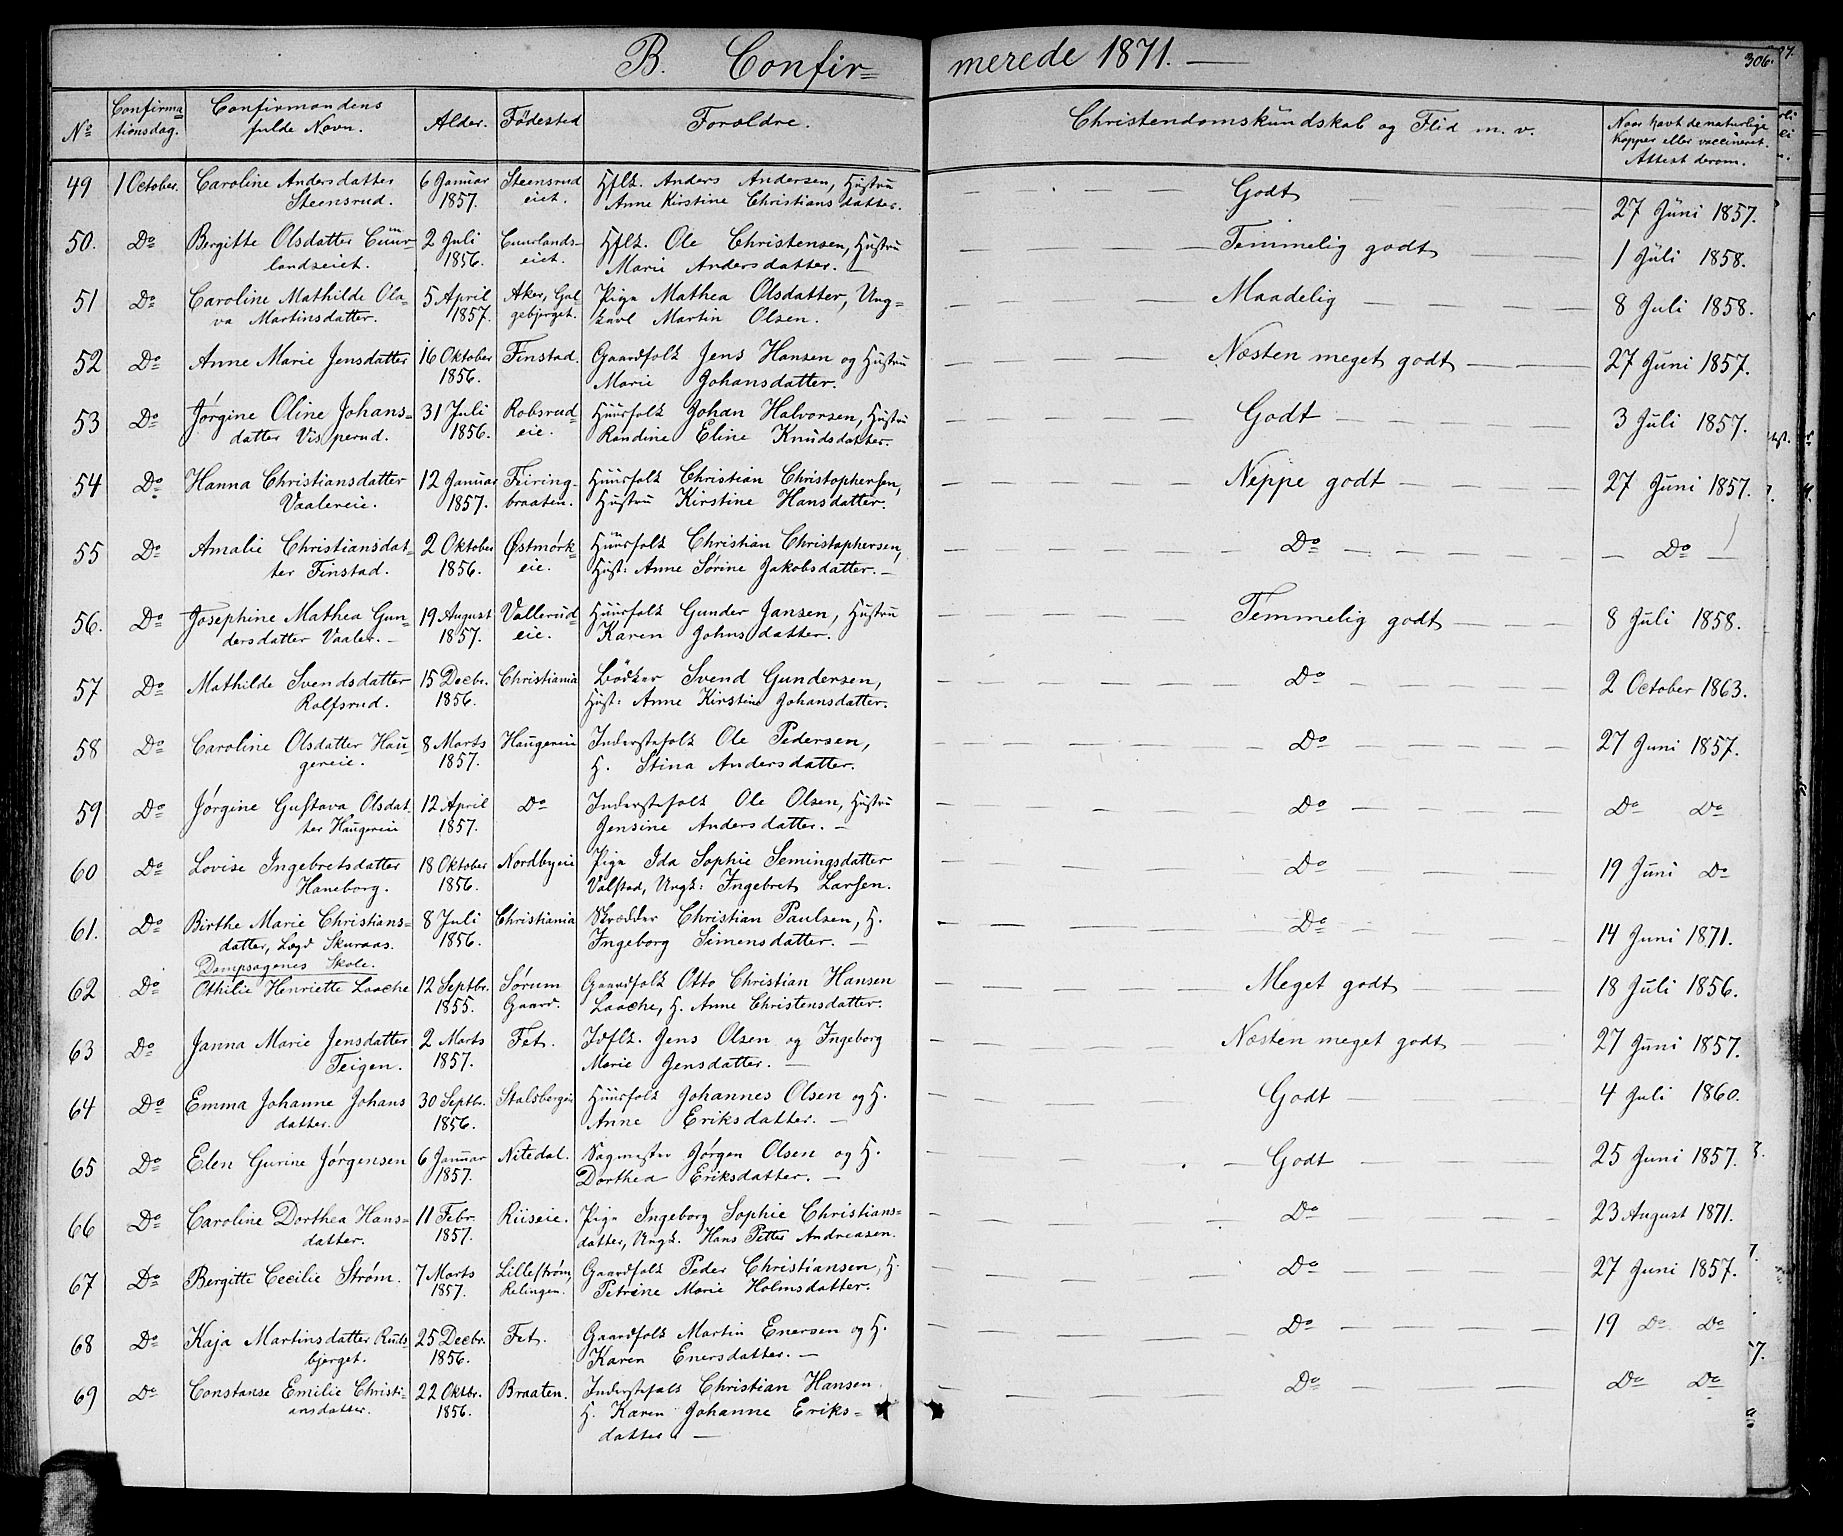 B. Confir=
merede 1871.
306.
87.
No
Confirma
tionsdag.
Confirmandens
fulde Navn.
Alder.
Fødested
Forældre.
Christendomskundskab og Flid m. v.
Naar havt de naturlige
Kopper eller vaccineret.
Attest derom.
49 1 October. Caroline Andersdatter 6 Januar Steensrud Hflk. Anders Andersen, Hustru — Godt —
Steensrud. 1857. eiet. Anne Kirstine Christiansdatter. 27 Juni 1857.
50. Do Bergitte Olsdatter Cuur 2 Juli Cuurlands- Hflk. Ole Christensen, Hustru — Temmelig godt —
landseiet. 1856. eiet. Marie Andersdatter. — 1 Juli 1858.
51 Do Caroline Mathilde Ola- 5 April Aker, Gal Pige Mathea Olsdatter, Ung- — Maadelig — 8 Juli 1858.
va Martinsdatter. 1857. gebjerget. karl Martin Olsen.
52 Do Anne Marie Jensdatter 16 Oktober Finstad. Gaardfolk Jens Hansen og Hustru — Næsten meget godt — 27 Juni 1857.
1856. Marie Johansdatter.
53 Do Jørgine Oline Johans= 31 Juli Robsrud Huusfolk Johan Halvorsen, Hustru — Godt — 3 Juli 1857.
datter Visperud. 1856. eie. Randine Eline Knudsdatter.
54 Do Hanna Christiansdatter 12 Januar Feiring- Huusfolk Christian Christophersen, — Neppe godt — 27 Juni 1857.
Vaalereie. 1857. braaten. Hustru Kirstine Hansdatter.
55 Do Amalie Christiansdat- 2 Oktober Østmørk- Huusfolk Christian Christophersen, — Do — — Do —
ter Finstad. 1856. eie. Hust: Anne Sørine Jakobsdatter. —
56. Do Josephine Mathea Gun- 19 August Vallerud- Huusfolk Gunder Jansen, Hustru — Temmelig godt — 8 Juli 1858.
dersdatter Vaaler. — 1857. eie. Karen Johnsdatter.
57 Do Mathilde Svendsdatter 15 Decbr. Christiania Bödker Svend Gundersen, — Do — 2 October 1863.
Rolfsrud. 1856. Hust: Anne Kirstine Johansdatter.
58 Do Caroline Olsdatter Hau- 8 Marts Haugereie Inderstefolk Ole Pedersen, — Do — 27 Juni 1857.
gereie. 1857. H. Stina Andersdatter.
59 Do Jørgine Gustava Olsdat- 12 April Do Inderstefolk Ole Olsen, Hustru — Do — Do Do
ter Haugereie 1857. Jensine Andersdatter. —
60 Do Lovise Ingebretsdatter 18 Oktober Nordbyeie Pige Ida Sophie Semingsdatter — Do — 19 Juni Do
Haneborg. 1856. Valstad, Ungk: Ingebret Larsen.
61. Do Birthe Marie Christians- 8 Juli Christiania Skrædder Christian Paulsen, H. — Do — 14 Juni 1871.
datter, Lægd Skuraas. 1856. Ingeborg Simensdatter. —
Dampsagenes Skole.
62 Do Othilie Henriette Laache 12 Septbr. Sørum Gaardfolk Otto Christian Hansen — Meget godt — 18 Juli 1856.
1855. Gaard. Laache, H. Anne Christensdatter.
63 Do Janna Marie Jensdatter 2 Marts Fet. Idflk. Jens Olsen og Ingeborg — Næsten meget godt — 27 Juni 1857.
Teigen. 1857. Marie Jensdatter. —
64 Do Emma Johanne Johans 30 Septbr. Stalsbergeie Huusfolk Johannes Olsen og H. — Godt — 4 Juli 1860.
datter. 1856. Anne Eriksdatter. —
65 Do Elen Gurine Jørgensen 6 Januar Nitedal. Sagmester Jørgen Olsen og H. — Godt — 25 Juni 1857.
1857. Dorthea Eriksdatter. —
66 Do Caroline Dorthea Hans- 11 Febr. Riiseie. Pige Ingeborg Sophie Christians- — Do — 23 August 1871.
datter. 1857. datter, Ungk. Hans Petter Andreasen.
67 Do Bergitte Cecilie Strøm. 7 Marts Lillestrøm, Gaardfolk Peder Christiansen, H. — Do — 27 Juni 1857.
1857. Relingen. Petrine Marie Holmsdatter.
68 Do Kaja Martinsdatter Ruds 25 Decbr. Fet. Gaardfolk Martin Enersen og H. — Do — 19 Do Do
bjerget. 1856. Karen Enersdatter. —
69 Do Constanse Emilie Christi- 22 Oktbr. Braaten. Inderstefolk Christian Hansen — Do — Do Do
ansdatter. 1856. H. Karen Johanne Eriks-
datter. —